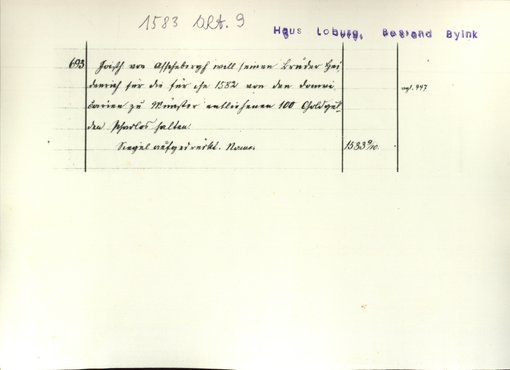 1583 Okt. 9
Haus Loburg, Bestand Byink
693 Joest von Asschebergh will seinen Bruder Hei-
denrich für die für ihn 1582 von den Domvi-
karien zu Münster entliehenen 100 Goldgul-
den schadlos halten. vgl. 447
Siegel aufgedrückt. Name. 1583 9/10.